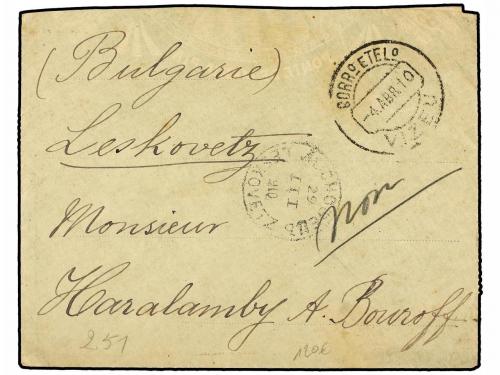 (Bulgarie)
Leskovetz
Monsieur
Haralamby A. Bouroff
non
CORRO. E TELO.
-4 ABR. 10
VIZEU
29
III
910
251